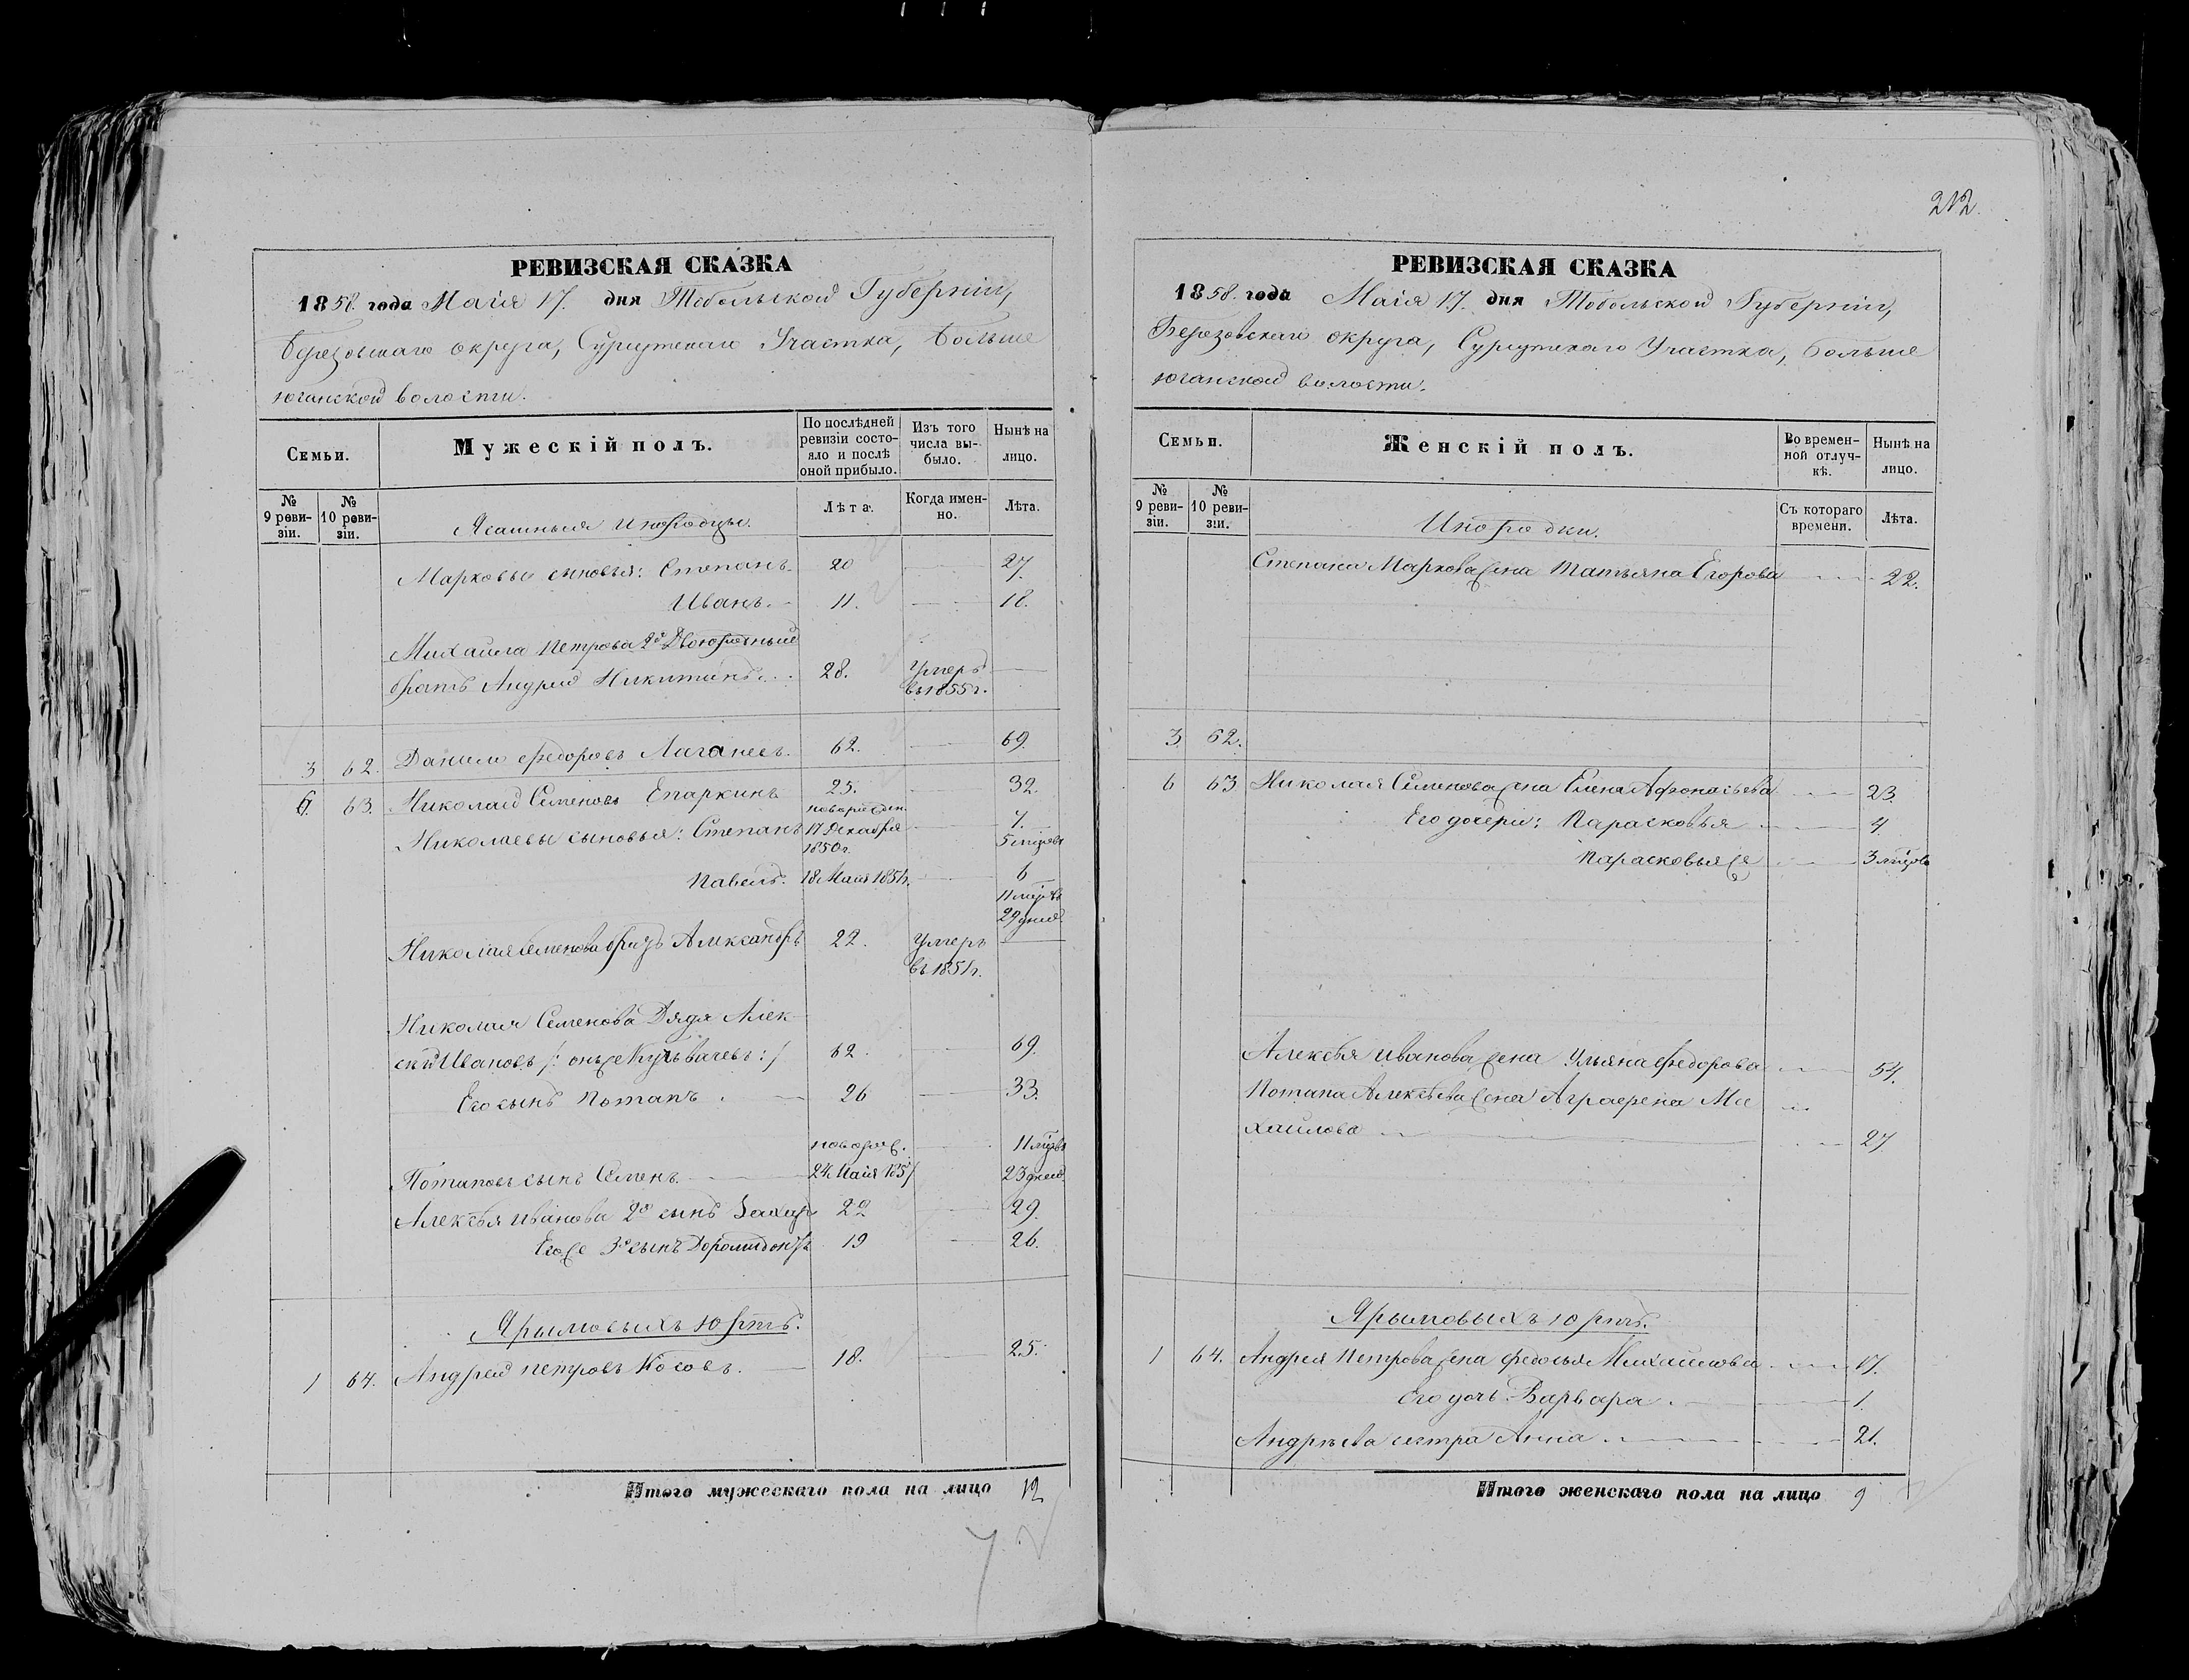 212.
РЕВИЗСКАЯ СКАЗКА
1858. года Маія 17. дня Тобольской Губерніи,
Березовскаго округа, Сургутскаго Участка, Больше
юганской волости.
Семьи.
Мужескій полъ.
По послѣдней ревизіи состояло и послѣ оной прибыло.
Изъ того числа выбыло.
Нынѣ на лицо.
№ 9 ревизіи.
№ 10 ревизіи.
Ясашныя Инородцы.
Лѣта.
Когда именно.
Лѣта.
Марковы сыновья: Степанъ 20 27.
Иванъ. 11. 18.
Михайла Петрова 2й Двоюродный
братъ Андрей Никитинъ 28. Умеръ въ 1855 г.
3 62. Данило Федоровъ 62. 69.
6. 63. Николай Семеновъ Епаркинъ 25. 32.
Николаевы сыновья: Степанъ новорожден. 17 Декабря 1850 г. 7. 5 мѣсяцовъ
Павелъ. 18 Маія 1851 г. 6 11 мѣсяцовъ 29 дней.
Николая Семенова братъ Александръ 22. Умеръ въ 1851 г.
Николая Семенова Дядя Алек
сѣй Ивановъ /: онъ же :/ 62. 69.
Его сынъ Потапъ. 26 33.
Потаповъ сынъ Семенъ новорож. 24 Маія 1857 11 мѣсяцовъ 23 дней.
Алексѣя Иванова 2й сынъ Захаръ 22 29.
Его же 3й сынъ Доромидонтъ 19 26.
Ярымовыхъ Юртъ.
1 64. Андрей Петровъ Косовъ. 18. 25.
Итого мужескаго пола на лицо 12
РЕВИЗСКАЯ СКАЗКА
1858. года Маія 17. дня Тобольской Губерніи,
Березовскаго округа, Сургутскаго Участка, больше
юганской волости.
Семьи.
Женскій полъ.
Во временной отлучкѣ.
Нынѣ на лицо.
№ 9 ревизіи.
№ 10 ревизіи.
Инородки.
Съ котораго времени.
Лѣта.
Степана Маркова жена Татьяна Егорова 22.
3 62.
6 63 Николая Семенова жена Елена Афонасьева 23.
Его дочери: Парасковья 4
Парасковья же 3 мѣсяцовъ
Алексѣя Иванова жена Ульяна Федорова 54.
Потапа Алексѣева жена Аграфена Ми
хайлова 27
Ярымовыхъ Юртъ.
1 64. Андрея Петрова жена Федосья Михайлова 17.
Его дочь Варвара. 1.
Андрѣева сестра Анна 21.
Итого женскаго пола на лицо 9